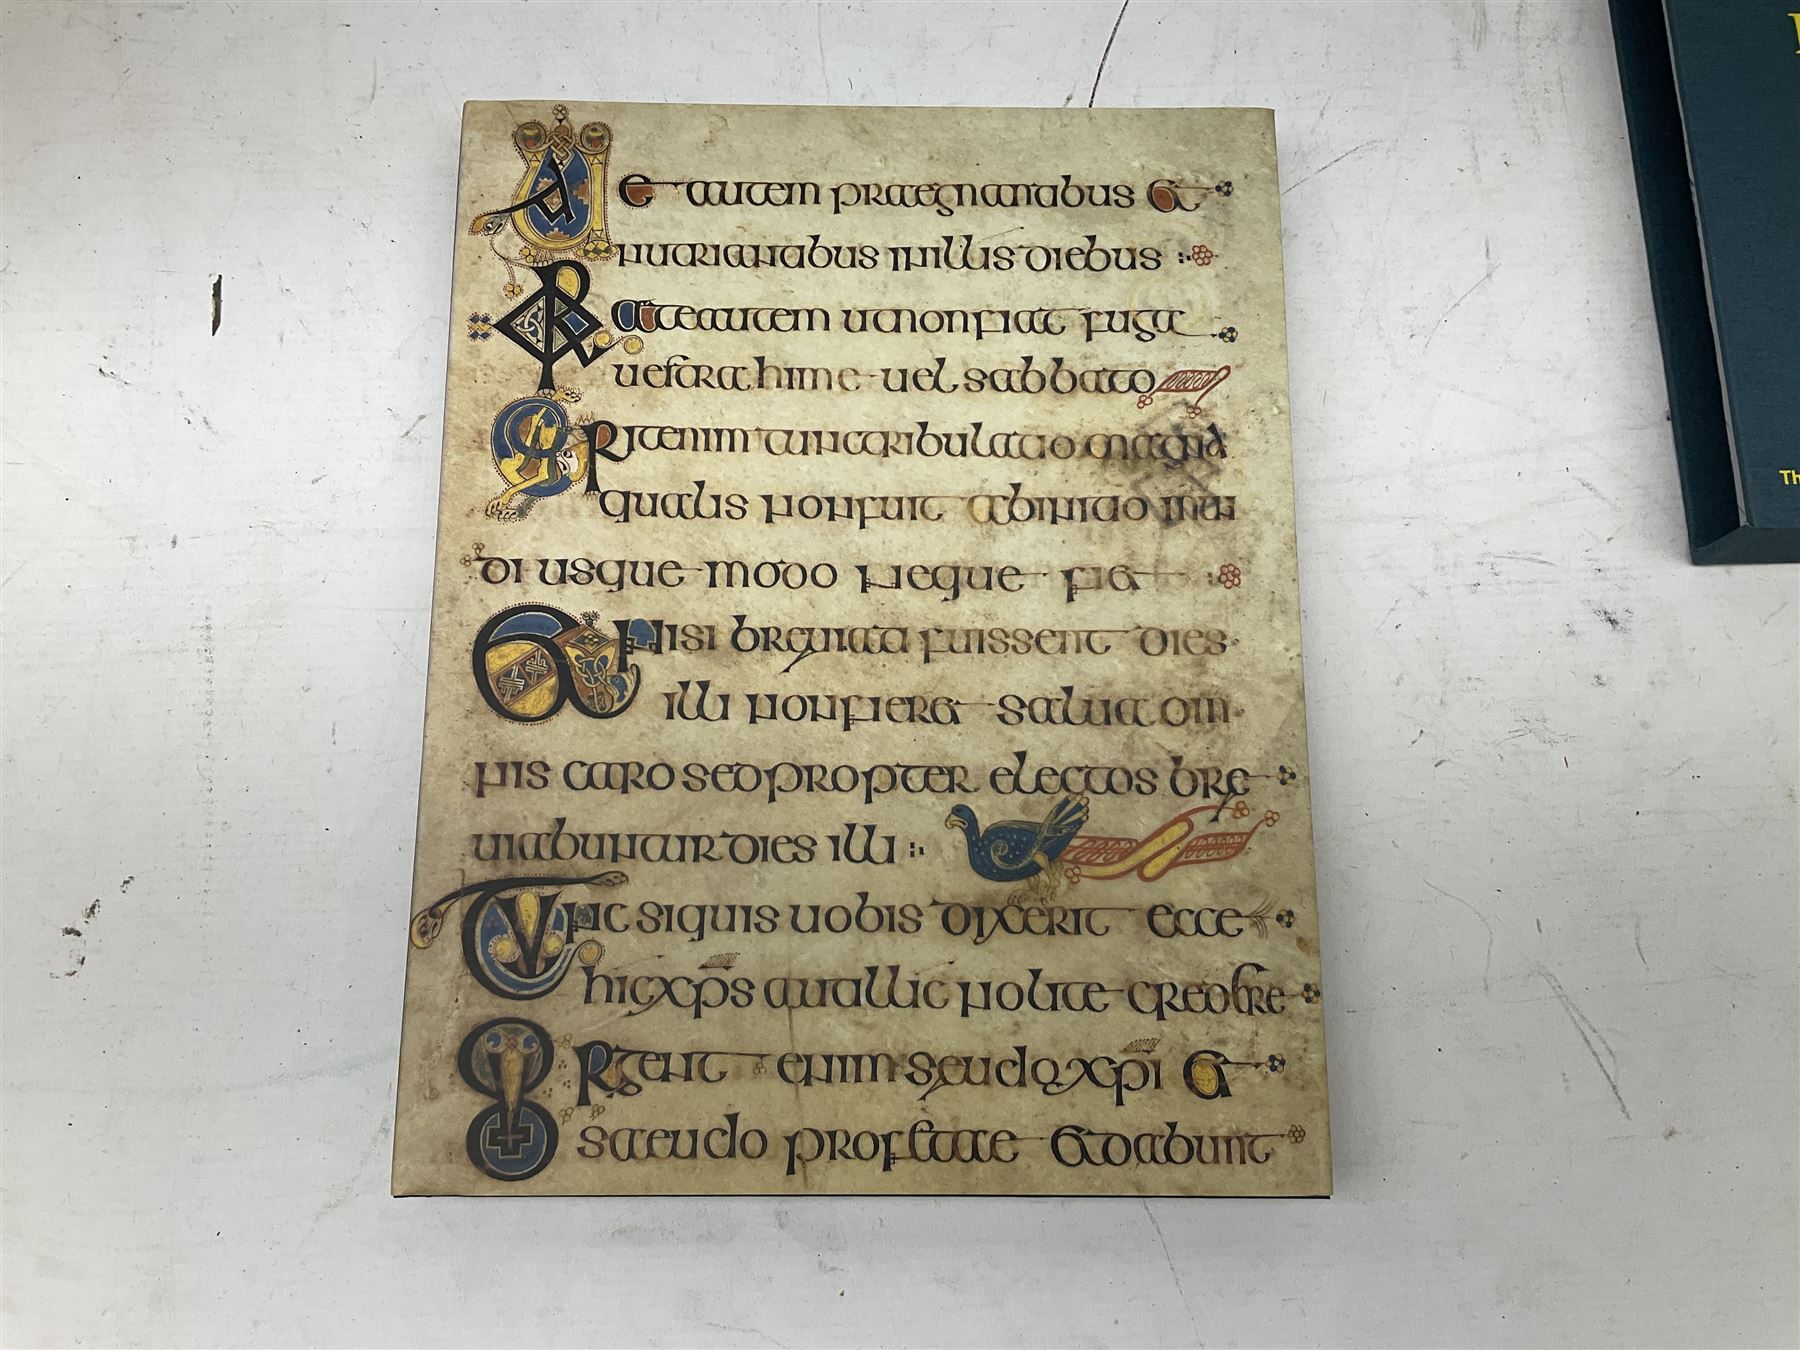 Uae autem praegnantabus et
nutriantabus inillis diebus
Orate autem utnonfiat fuga
uestra hime uel sabbato
Erit enim tunc tribulatio magna
qualis nonfuit abinitio mun
di usque modo neque fiet
Et nisi breuiati fuissent dies
illi nonfieret salua om
nis caro sed propter electos bre
uiabuntur dies illi
Tunc siquis uobis dixerit ecce
hic xps aut illic nolite credere
Surgent enim seudo xpi et
saeudo profetae et dabunt
Th